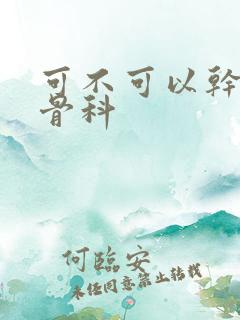 可不可以幹
骨科
何臨安
未经同意禁止转载